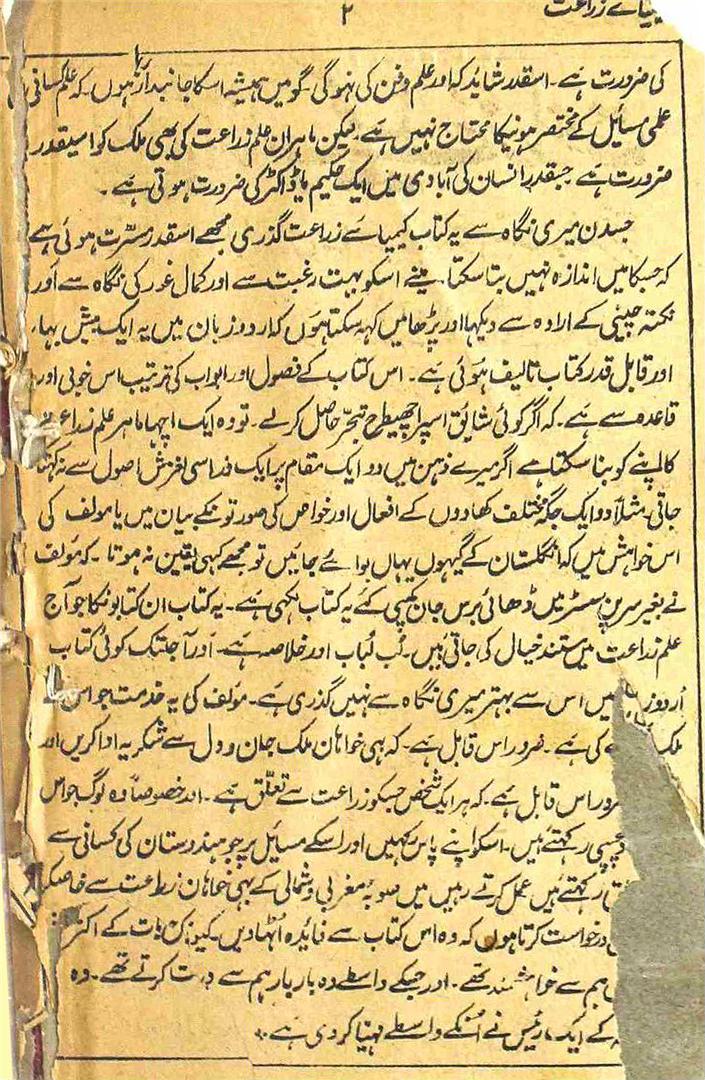 کیمیاے زراعت
۲
کی ضرورت ہے۔ اسقدر شاید کہ اور علم و فن کی نہوگی۔ گو میں ہمیشہ اسکا جانبدار رہا ہوں۔ کہ علم کسانی
علمی مسائیل کے مختصر ہونیکا محتاج نہیں ہے۔ لیکن ماہران علم زراعت کی بھی ملک کو اسیقدر
ضرورت ہے جسقدر انسان کی آبادی میں ایک حکیم یا ڈاکٹر کی ضرورت ہوتی ہے۔
جسدن میری نگاہ سے یہ کتاب کیمیاے زراعت گذری مجھے اسقدر مسرّت ہوئی ہے
کہ جسکا میں اندازہ نہیں بتا سکتا۔ مینے اسکو بہت رغبت سے اور کمال غور کی نگاہ سے اور
نکتہ چینی کے ارادہ سے دیکہا اور پڑھا میں کہہ سکتا ہوں کہ اردو زبان میں یہ ایک بیش بہا،
اور قابل قدر کتاب تالیف ہوئی ہے۔ اس کتاب کے فصول اور ابواب کی ترتیب اس خوبی اور
قاعدہ سے ہے۔ کہ اگر کوئی شایق اسپر اچھیطرح تبحّر حاصل کرلے۔ تو وہ ایک اچہا ماہر علم زراعت
کا اپنے کو بنا سکتا ہے اگر میرے ذہن میں دو ایک مقام پر ایک ذرا سی لغزش اصول سے نہ کہٹا
جاتی۔ مثلاً دو ایک جگہ مختلف کھادوں کے افعال اور خواص کی صورتونکے بیان میں یا مولف کی
اس خواہش میں کہ انگلستان کے گیہوں یہاں بوائے جائیں تو مجھے کہی یقین نہ ہوتا۔ کہ مولف
نے بغیر سرین سسٹر میں ڈھائی برس جان کھپی کئے یہ کتاب لکہی ہے۔ یہ کتاب ان کتابونکا جو آج
علم زراعت میں مستند خیال کی جاتی ہیں۔ لُب لُباب اور خلاصہ ہے۔ اور آجتک کوئی کتاب
اُردو میں اس سے بہتر میری نگاہ سے نہیں گذری ہے۔ مولف کی یہ خدمت جو اس نے
ملک کی ہے۔ ضرور اس قابل ہے۔ کہ بہی خواہان ملک جان و دل سے شکریہ ادا کریں اور
ضرور اس قابل ہے۔ کہ ہر ایک شخص جسکو زراعت سے تعلّق ہے۔ اور خصوصاً وہ لوگ جو اس
دلچسپی رکہتے ہیں۔ اسکو اپنے پاس رکہیں اور اسکے مسایل پر جو ہندوستان کی کسانی سے
رکہتے ہیں عمل کرتے رہیں میں صوبہ مغربی و شمالی کے بہی خواہان زراعت سے خاصکر
درخواست کرتا ہوں کہ وہ اس کتاب سے فائیدہ اُٹہاویں۔ کیونکہ بات کے اکثر
ہم سے خواہشمند تھے۔ اور جسکے واسطے وہ بار بار ہم سے کرتے تھے۔ وہ
کے ایک رئیس نے اُنکے واسطے مہیّا کر دی ہے۔